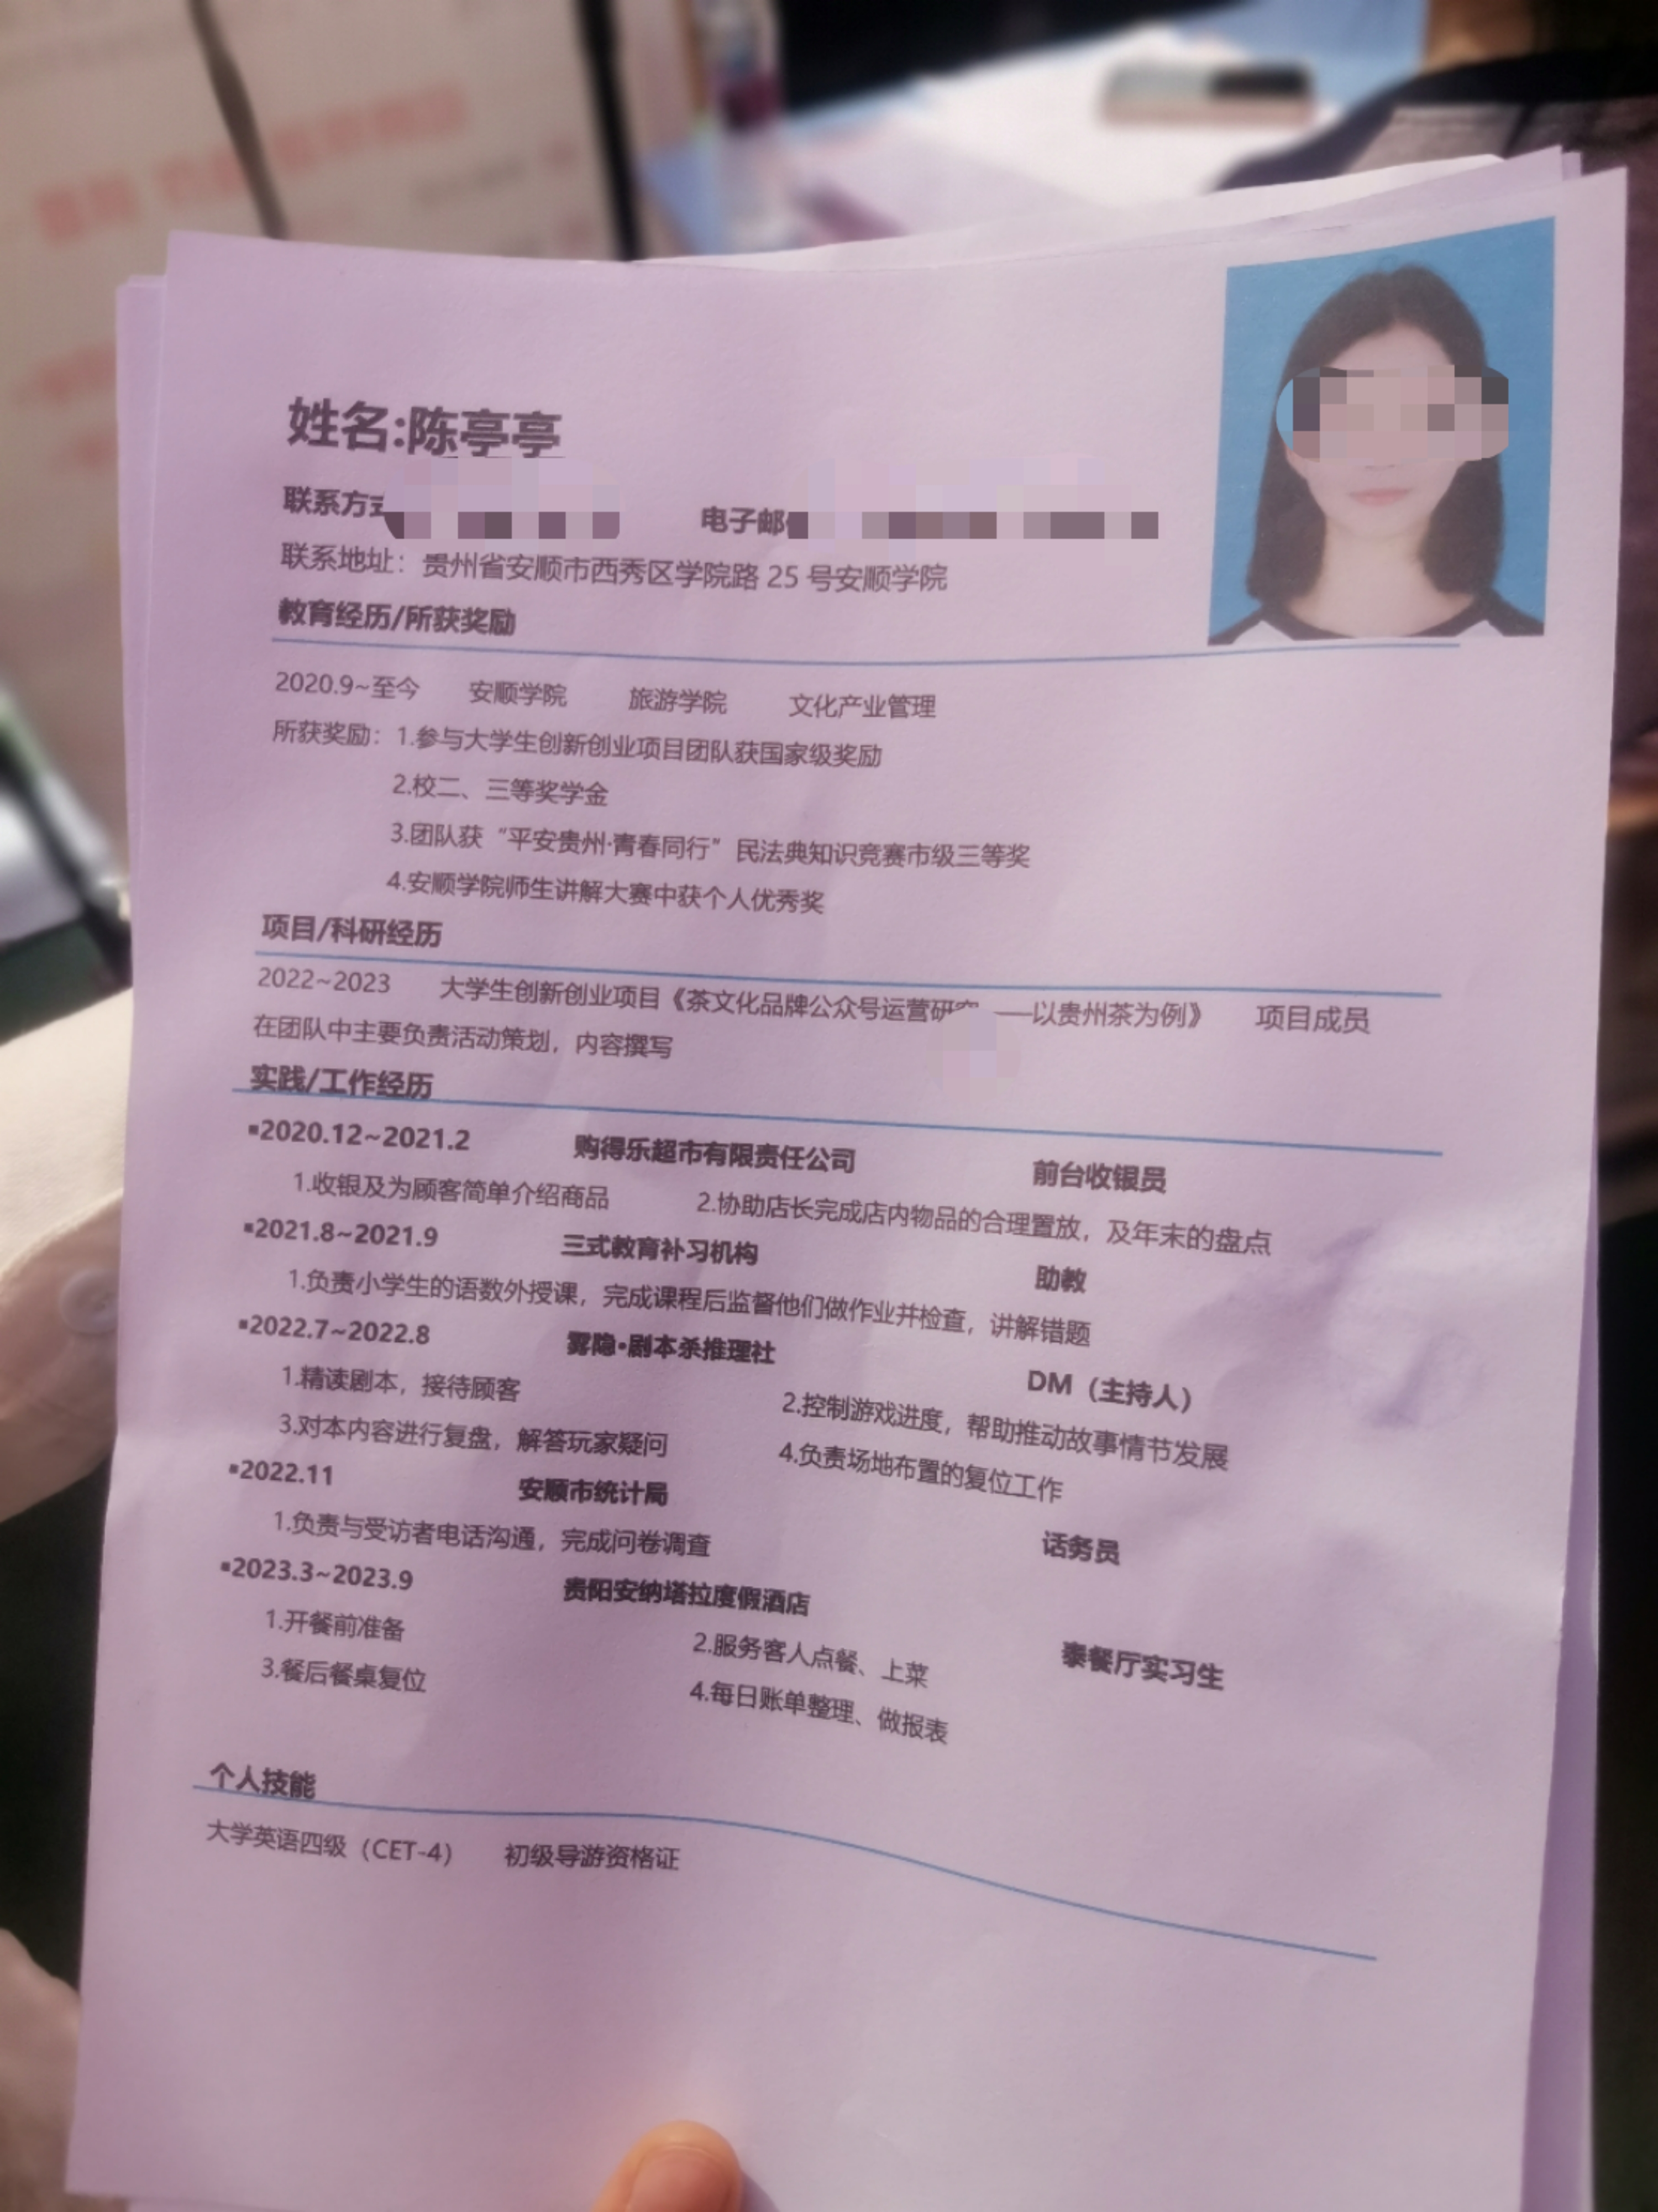 姓名:陈亭亭
联系方式 电子邮
联系地址：贵州省安顺市西秀区学院路 25 号安顺学院
教育经历/所获奖励
2020.9~至今 安顺学院 旅游学院 文化产业管理
所获奖励：1.参与大学生创新创业项目团队获国家级奖励
2.校二、三等奖学金
3.团队获“平安贵州·青春同行”民法典知识竞赛市级三等奖
4.安顺学院师生讲解大赛中获个人优秀奖
项目/科研经历
2022~2023 大学生创新创业项目《茶文化品牌公众号运营研究——以贵州茶为例》 项目成员
在团队中主要负责活动策划，内容撰写
实践/工作经历
▪2020.12~2021.2 购得乐超市有限责任公司 前台收银员
1.收银及为顾客简单介绍商品 2.协助店长完成店内物品的合理置放，及年末的盘点
▪2021.8~2021.9 三式教育补习机构 助教
1.负责小学生的语数外授课，完成课程后监督他们做作业并检查，讲解错题
▪2022.7~2022.8 雾隐·剧本杀推理社 DM（主持人）
1.精读剧本，接待顾客 2.控制游戏进度，帮助推动故事情节发展
3.对本内容进行复盘，解答玩家疑问 4.负责场地布置的复位工作
▪2022.11 安顺市统计局 话务员
1.负责与受访者电话沟通，完成问卷调查
▪2023.3~2023.9 贵阳安纳塔拉度假酒店 泰餐厅实习生
1.开餐前准备 2.服务客人点餐、上菜
3.餐后餐桌复位 4.每日账单整理、做报表
个人技能
大学英语四级（CET-4） 初级导游资格证